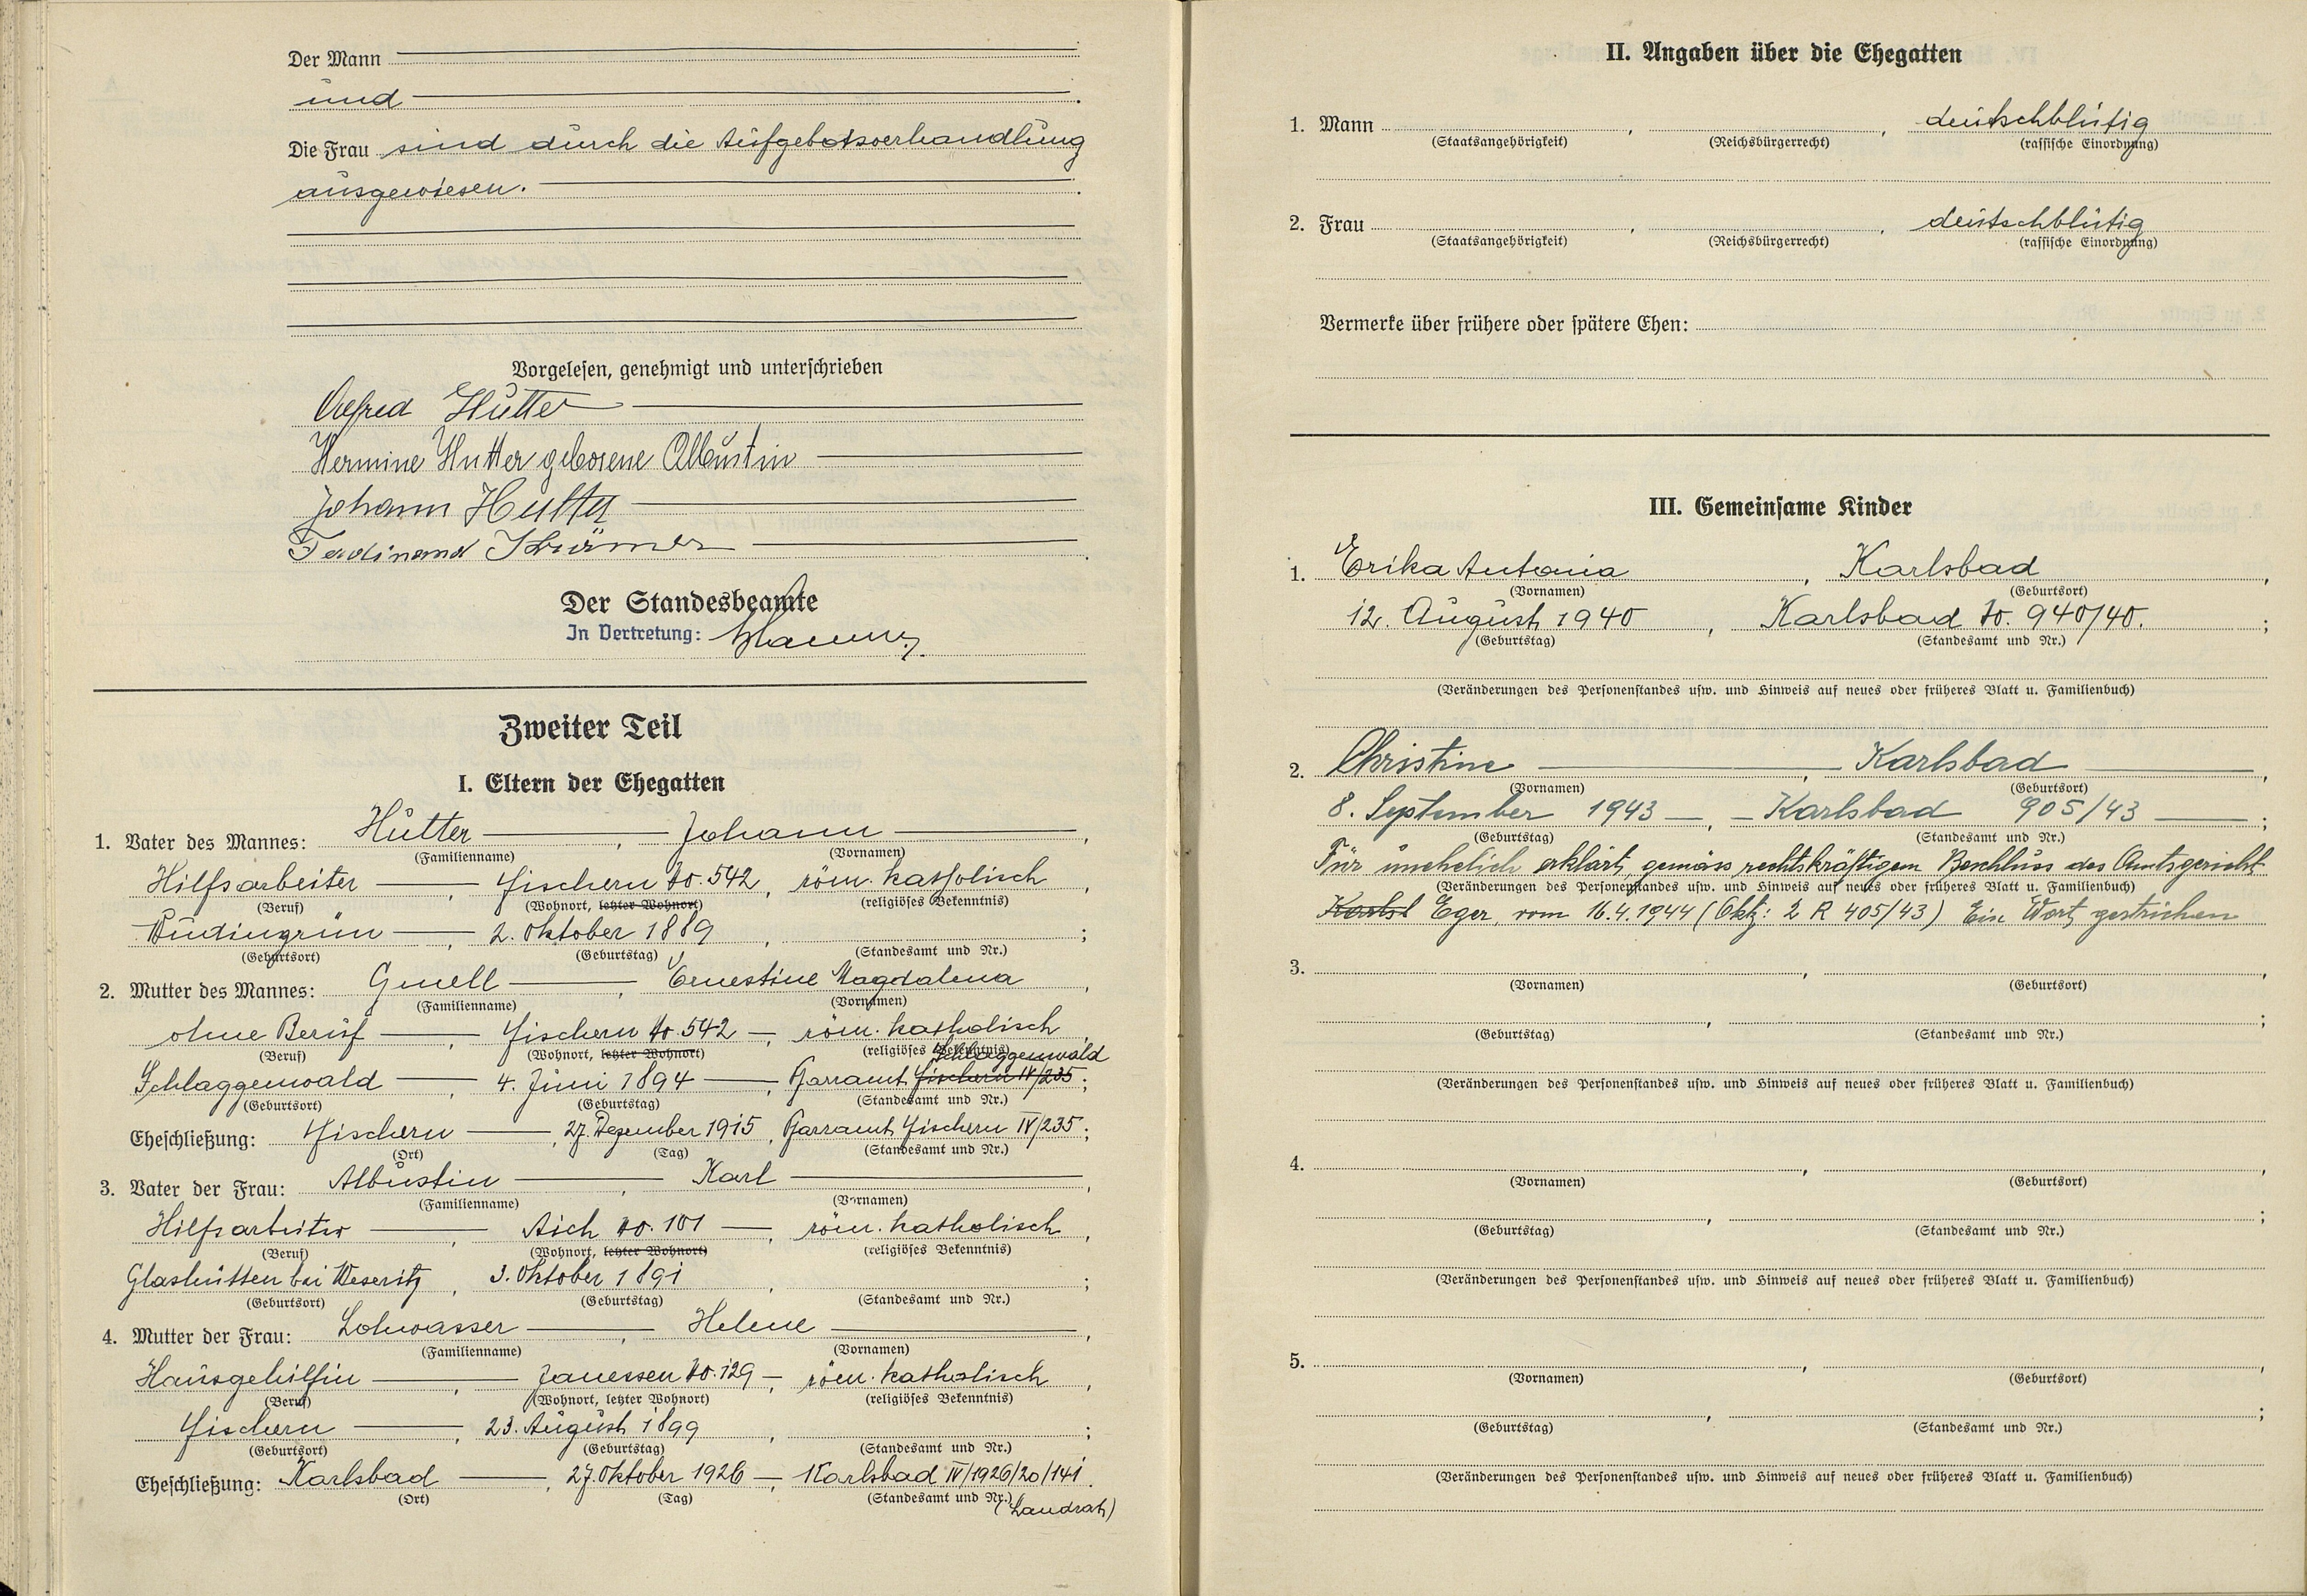 Der Mann
und
Die Frau sind durch die Aufgebotsverhandlung
ausgewiesen.
Vorgelesen, genehmigt und unterschrieben
Alfred Hutter
Hermine Hutter geborene Albustin
Johann Hutter
Ferdinand
Der Standesbeamte
In Vertretung:
Zweiter Teil
I. Eltern der Ehegatten
1. Vater des Mannes: Hutter, Johann,
(Familienname) (Vornamen)
Hilfsarbeiter, Fischern No. 542, röm. katholisch,
(Beruf) (Wohnort, letzter Wohnort) (religiöses Bekenntnis)
Wudingrün, 2. Oktober 1889, ;
(Geburtsort) (Geburtstag) (Standesamt und Nr.)
2. Mutter des Mannes: Gmell, Ernestine Magdalena,
(Familienname) (Vornamen)
ohne Beruf, Fischern No. 542, röm. katholisch,
(Beruf) (Wohnort, letzter Wohnort) (religiöses Bekenntnis)
Schlaggenwald
Schlaggenwald, 4. Juni 1894, Pfarramt Fischern IV/235;
(Geburtsort) (Geburtstag) (Standesamt und Nr.)
Eheschließung: Fischern, 27. Dezember 1915, Pfarramt Fischern IV/235;
(Ort) (Tag) (Standesamt und Nr.)
3. Vater der Frau: Albustin, Karl,
(Familienname) (Vornamen)
Hilfsarbeiter, Aich No. 101, röm. katholisch,
(Beruf) (Wohnort, letzter Wohnort) (religiöses Bekenntnis)
Glashütten bei Weseritz, 3. Oktober 1891, ;
(Geburtsort) (Geburtstag) (Standesamt und Nr.)
4. Mutter der Frau: Lohwasser, Helene,
(Familienname) (Vornamen)
Hausgehilfin, Janessen No. 129, röm. katholisch,
(Beruf) (Wohnort, letzter Wohnort) (religiöses Bekenntnis)
Fischern, 23. August 1899, ;
(Geburtsort) (Geburtstag) (Standesamt und Nr.)
Eheschließung: Karlsbad, 27. Oktober 1926, Karlsbad IV/1926/20/141.
(Ort) (Tag) (Standesamt und Nr.)
(Landrat)
II. Angaben über die Ehegatten
1. Mann , , deutschblütig
(Staatsangehörigkeit) (Reichsbürgerrecht) (rassische Einordnung)
2. Frau , , deutschblütig
(Staatsangehörigkeit) (Reichsbürgerrecht) (rassische Einordnung)
Vermerke über frühere oder spätere Ehen:
III. Gemeinsame Kinder
1. Erika Antonia, Karlsbad,
(Vornamen) (Geburtsort)
12. August 1940, Karlsbad No. 940/40. ;
(Geburtstag) (Standesamt und Nr.)
(Veränderungen des Personenstandes usw. und Hinweis auf neues oder früheres Blatt u. Familienbuch)
2. Christine, Karlsbad,
(Vornamen) (Geburtsort)
8. September 1943, Karlsbad 905/43 ;
(Geburtstag) (Standesamt und Nr.)
Für unehelich erklärt, gemäss rechtskräftigem Beschluss des Amtsgericht
(Veränderungen des Personenstandes usw. und Hinweis auf neues oder früheres Blatt u. Familienbuch)
Karlsb Eger, vom 16.4.1944 (Aktz: 2 R 405/43) Ein Wort gestrichen
3. , ,
(Vornamen) (Geburtsort)
, ;
(Geburtstag) (Standesamt und Nr.)
(Veränderungen des Personenstandes usw. und Hinweis auf neues oder früheres Blatt u. Familienbuch)
4. , ,
(Vornamen) (Geburtsort)
, ;
(Geburtstag) (Standesamt und Nr.)
(Veränderungen des Personenstandes usw. und Hinweis auf neues oder früheres Blatt u. Familienbuch)
5. , ,
(Vornamen) (Geburtsort)
, ;
(Geburtstag) (Standesamt und Nr.)
(Veränderungen des Personenstandes usw. und Hinweis auf neues oder früheres Blatt u. Familienbuch)